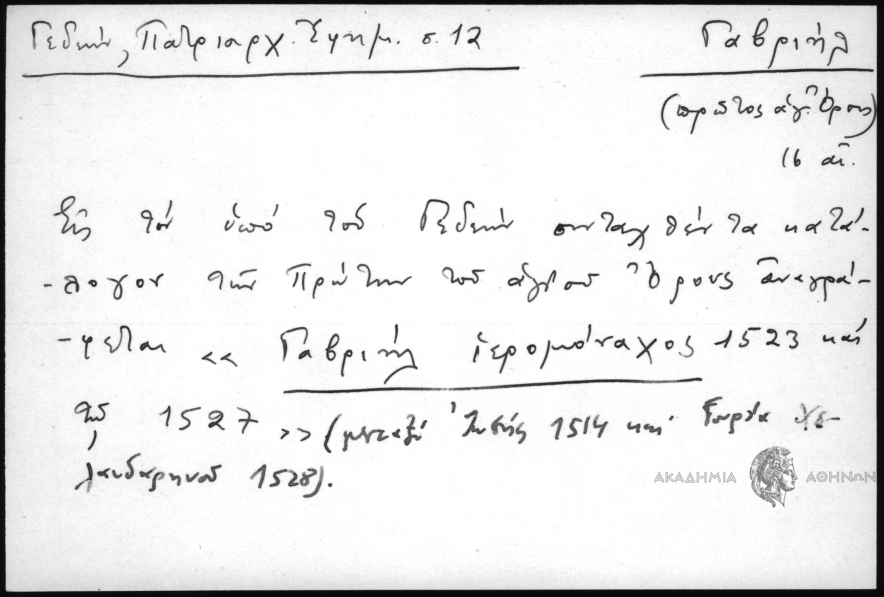 Γεδεών, Πατριαρχ. Ἐφημ. σ. 12
Γαβριήλ
(πρῶτος ἁγ. Ὄρους)
16 αἰ.
Εἰς τὸν ὑπό τοῦ Γεδεών συνταχθέντα κατά-
-λογον τῶν Πρώτων τοῦ ἁγίου Ὄρους ἀναγρά-
-φεται «Γαβριήλ ἱερομόναχος 1523 καί
τῷ 1527» (μεταξύ 1514 καί Χε-
λανδαρηνοῦ 1528).
ΑΚΑΔΗΜΙΑ ΑΘΗΝΩΝ